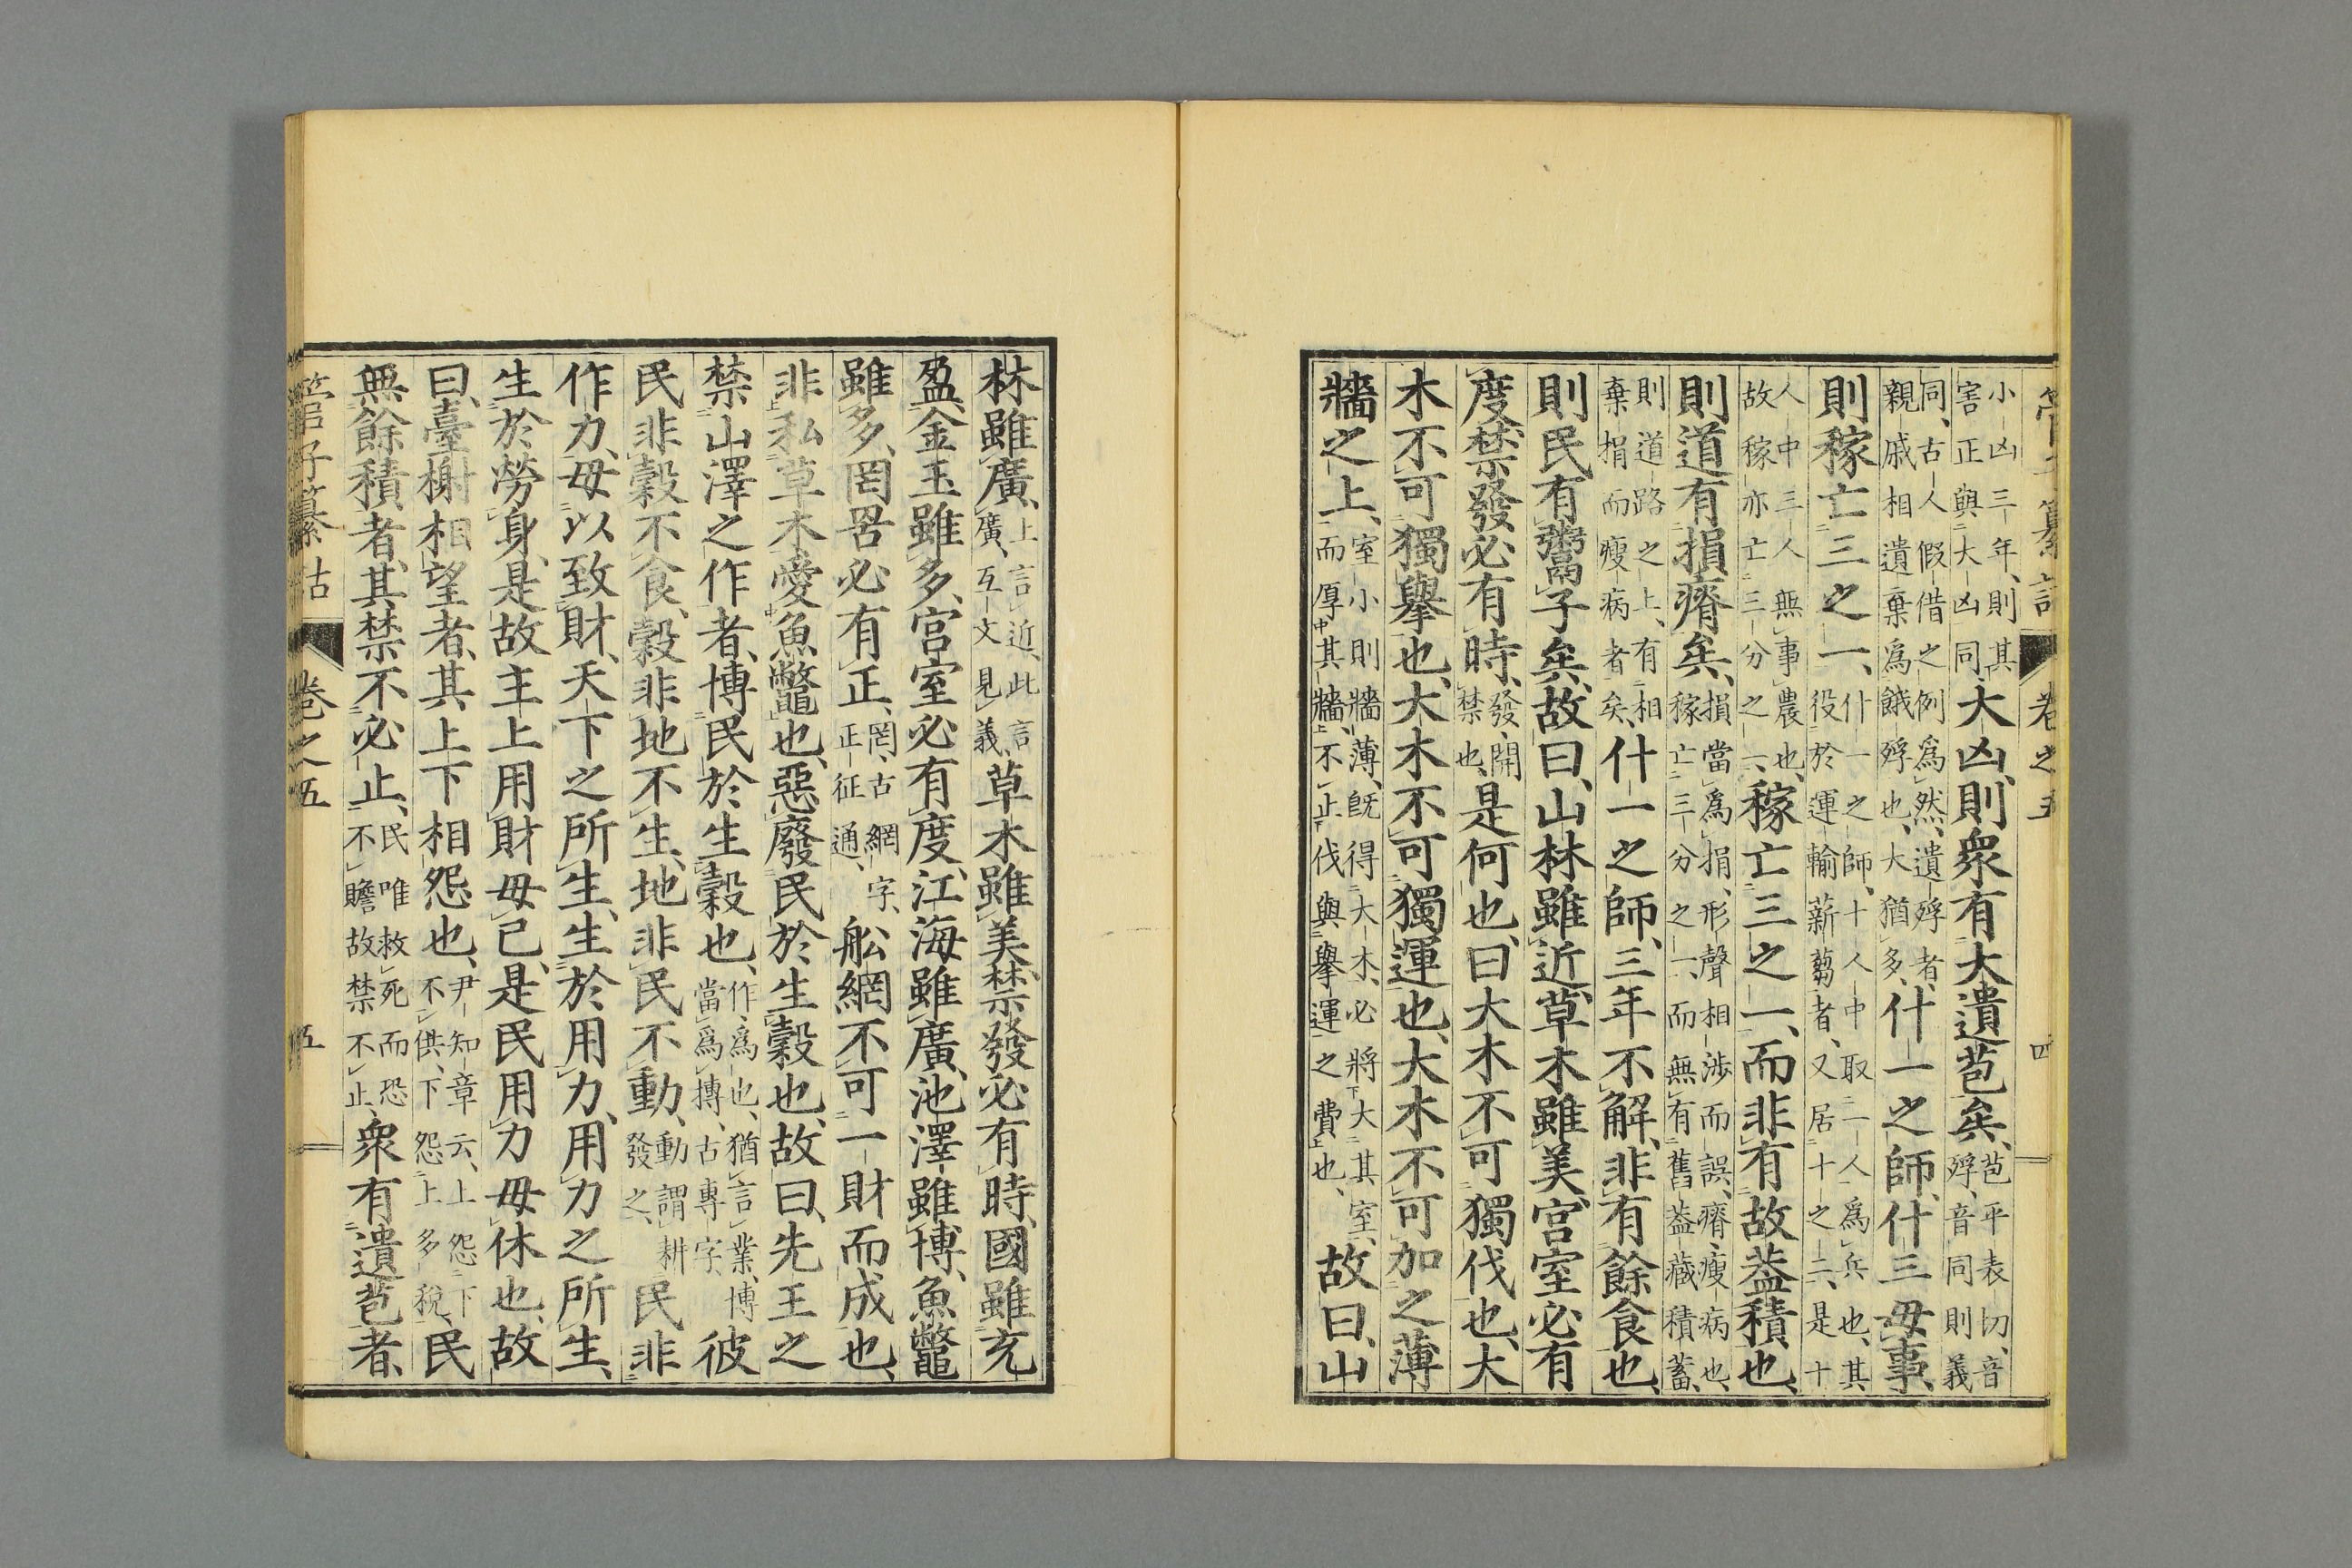 管子纂詁 卷之五 四
小凶三年、則其害正與大凶同、大凶、則衆有大遺苞矣、苞平表切、音殍、音同則義
同、古人假借之例爲然、遺殍者、親戚相遺棄爲餓殍也、大猶多、什一之師、什三毋事、
則稼亡三之一、什一之師、十人中取一人爲兵也、其役於運輸薪芻者、又居十之二、是十
人中三人無事農也、故稼亦亡三分之一、稼亡三之一、而非有故葢積也、
則道有損瘠矣、損當爲捐、形聲相涉而誤、瘠、瘦病也、稼亡三分之一、而無有舊葢藏積蓄、
則道路之上、有相棄捐而瘦病者矣、什一之師、三年不解、非有餘食也、
則民有鬻子矣、故曰、山林雖近、草木雖美、宮室必有
度、禁發必有時、發、開禁也、是何也、曰大木不可獨伐也、大
木不可獨擧也、大木不可獨運也、大木不可加之薄
牆之上、室小則牆薄、既得大木、必將大其室、而厚其牆、不止伐與擧運之費也、故曰、山
林雖廣、上言近、此言廣、互文見義、草木雖美、禁發必有時、國雖充
盈、金玉雖多、宮室必有度、江海雖廣、池澤雖博、魚鼈
雖多、罔罟必有正、罔、古網字、正征通、舩網不可一財而成也、
非私草木愛魚鼈也、惡廢民於生穀也、故曰、先王之
禁山澤之作者、博民於生穀也、作、爲也、猶言業、博當爲摶、古專字、彼
民非穀不食、穀非地不生、地非民不動、動謂耕發之、民非
作力、毋以致財、天下之所生、生於用力、用力之所生、
生於勞身、是故主上用財毋已、是民用力毋休也、故
曰、臺榭相望者、其上下相怨也、尹知章云、上怨下不供、下怨上多稅、民
無餘積者、其禁不必止、民唯救死而恐不贍故禁不止、衆有遺苞者、
管子纂詁 卷之五 五